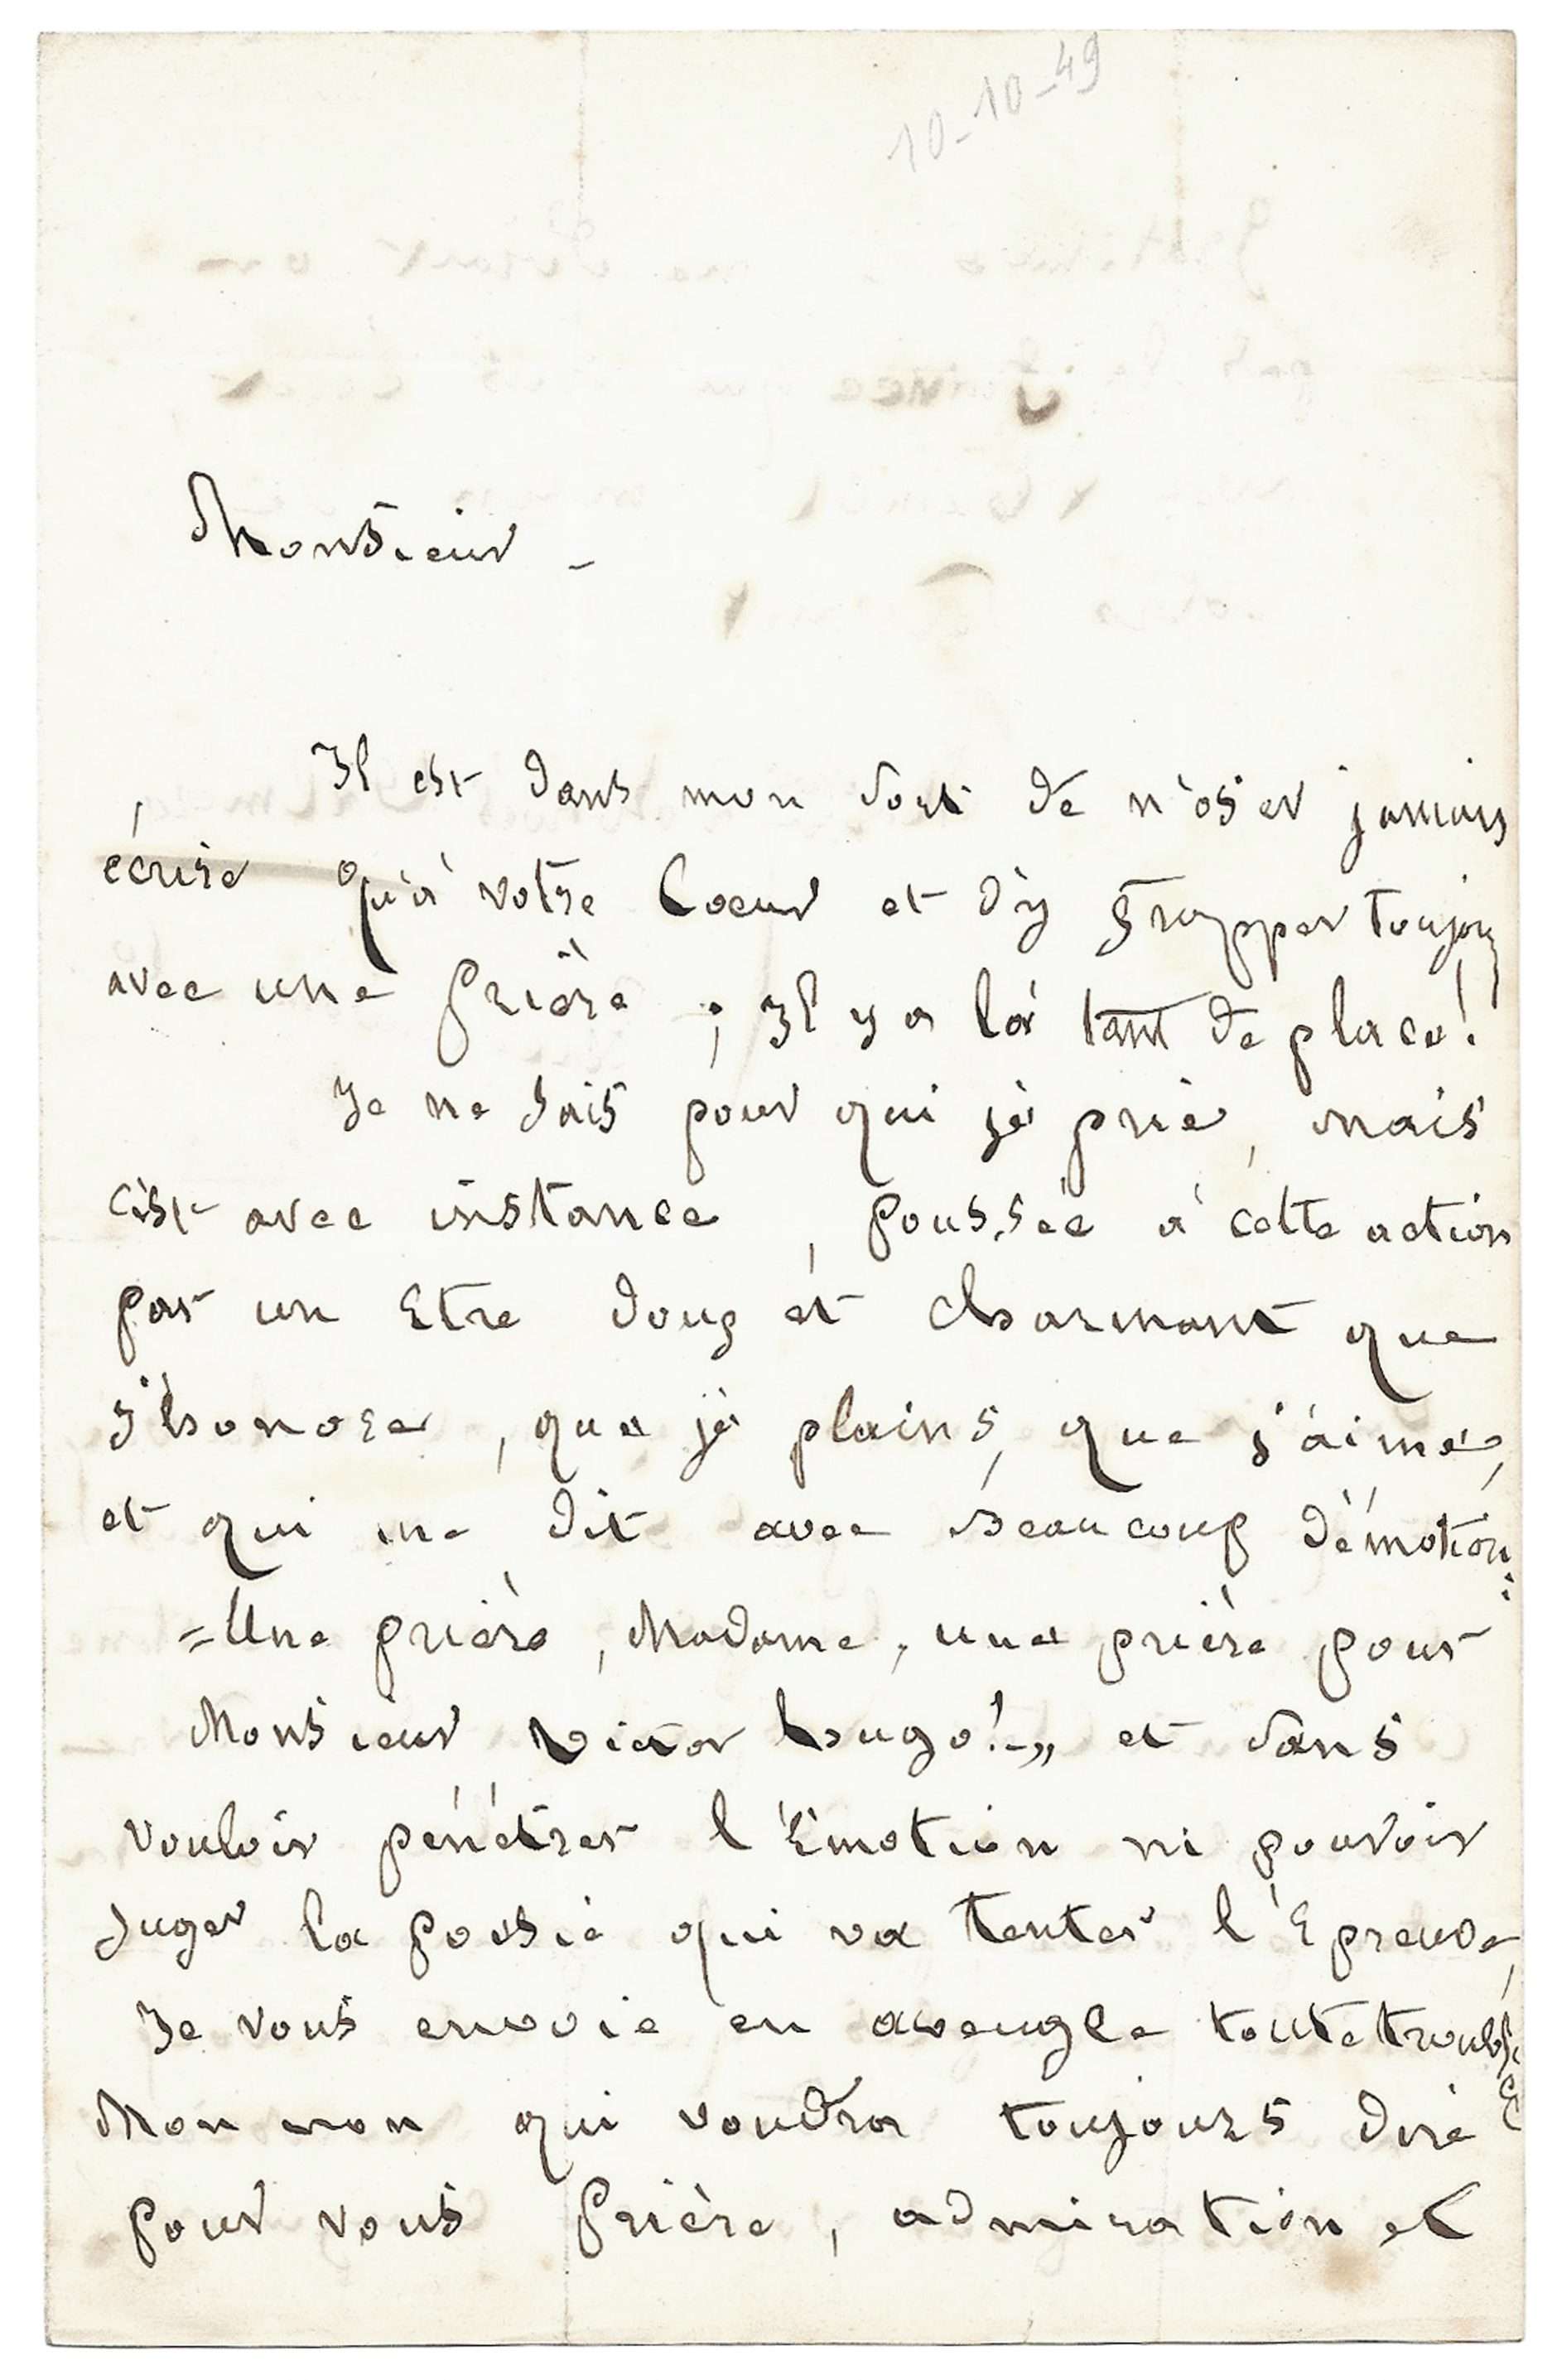 10-10-49
Monsieur -
Il est dans mon sort de n'oser jamais
écrire qu'à votre Coeur et d'y frapper toujours
avec une prière ; Il y a là tant de place !
Je ne sais pour qui je prie, mais
c'est avec instance, poussée à cette action
par un Etre doux et charmant que
j'honore, que je plains, que j'aime,
et qui me dit avec beaucoup d'émotion :
= Une prière, Madame, une prière pour
Monsieur Victor hugo ! -,, et sans
vouloir pénétrer l'Emotion ni pouvoir
Juger la poësie qui va tenter l'Epreuve,
Je vous envoie en aveugle toute troublée
Mon nom qui voudra toujours dire
pour vous prière, admiration et